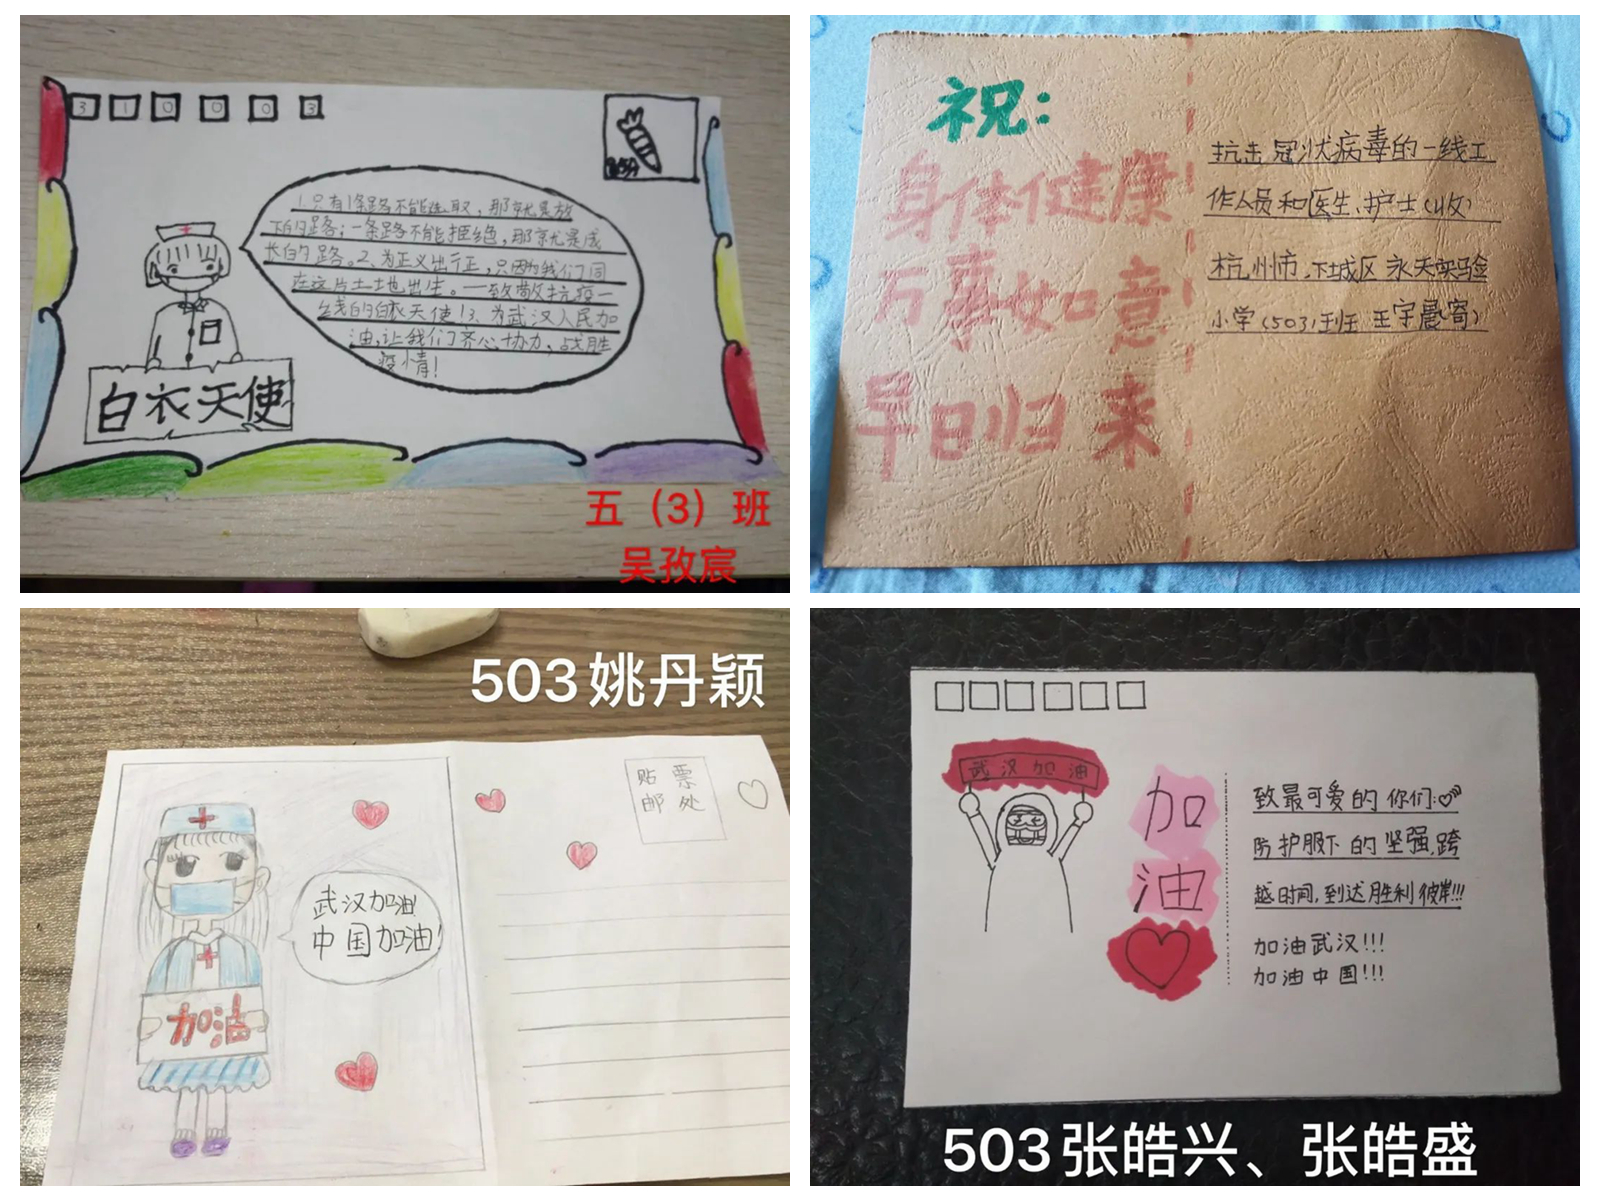 310003
80分
1.只有1条路不能选取，那就是放
下的路；一条路不能拒绝，那就是成
长的路。2、为正义出行正，只因为我们同
在这片土土地出生。一致敬抗疫一
线的白衣天使！3、为武汉人民加
油，让我们齐心协力，战胜
疫情！
白衣天使
五（3）班
吴孜宸
祝：
身体健康
万喜如意
早日归来
抗击冠状病毒的一线工
作人员和医生、护士（收）
杭州市、下城区 永天实验
小学（503）班 王宇晨（寄）
503姚丹颖
贴票
邮处
武汉加油!
中国加油!
加油
武汉加油
加
油
致最可爱的你们:
防护服下的坚强,跨
越时间,到达胜利彼岸!!!
加油武汉!!!
加油中国!!!
503张皓兴、张皓盛